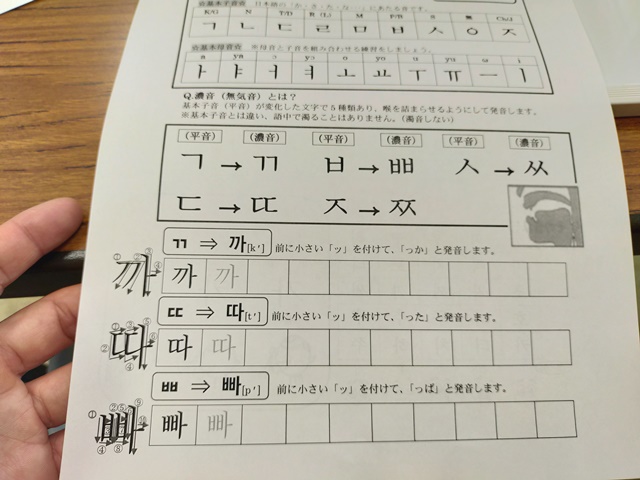 ☆基本子音☆ 日本語の「か・さ・た・な…」にあたる音です。
K/G N T/D R (L) M P/B S 無 Ch(J)
ㄱ ㄴ ㄷ ㄹ ㅁ ㅂ ㅅ ㅇ ㅈ
☆基本母音☆ ※母音と子音を組み合わせる練習をしましょう。
a ya ɔ yɔ o yo u yu ɯ i
ㅏ ㅑ ㅓ ㅕ ㅗ ㅛ ㅜ ㅠ ㅡ ㅣ
Q.濃音（無気音）とは？
基本子音（平音）が変化した文字で５種類あり、喉を詰まらせるようにして発音します。
※基本子音とは違い、語中で濁ることはありません。（濁音しない）
（平音） （濃音） （平音） （濃音） （平音） （濃音）
ㄱ → ㄲ ㅂ → ㅃ ㅅ → ㅆ
ㄷ → ㄸ ㅈ → ㅉ
ㄲ ⇒ 까[k'] 前に小さい「ッ」を付けて、「っか」と発音します。
까 까 까
ㄸ ⇒ 따[t'] 前に小さい「ッ」を付けて、「った」と発音します。
따 따 따
ㅃ ⇒ 빠[p'] 前に小さい「ッ」を付けて、「っぱ」と発音します。
빠 빠 빠